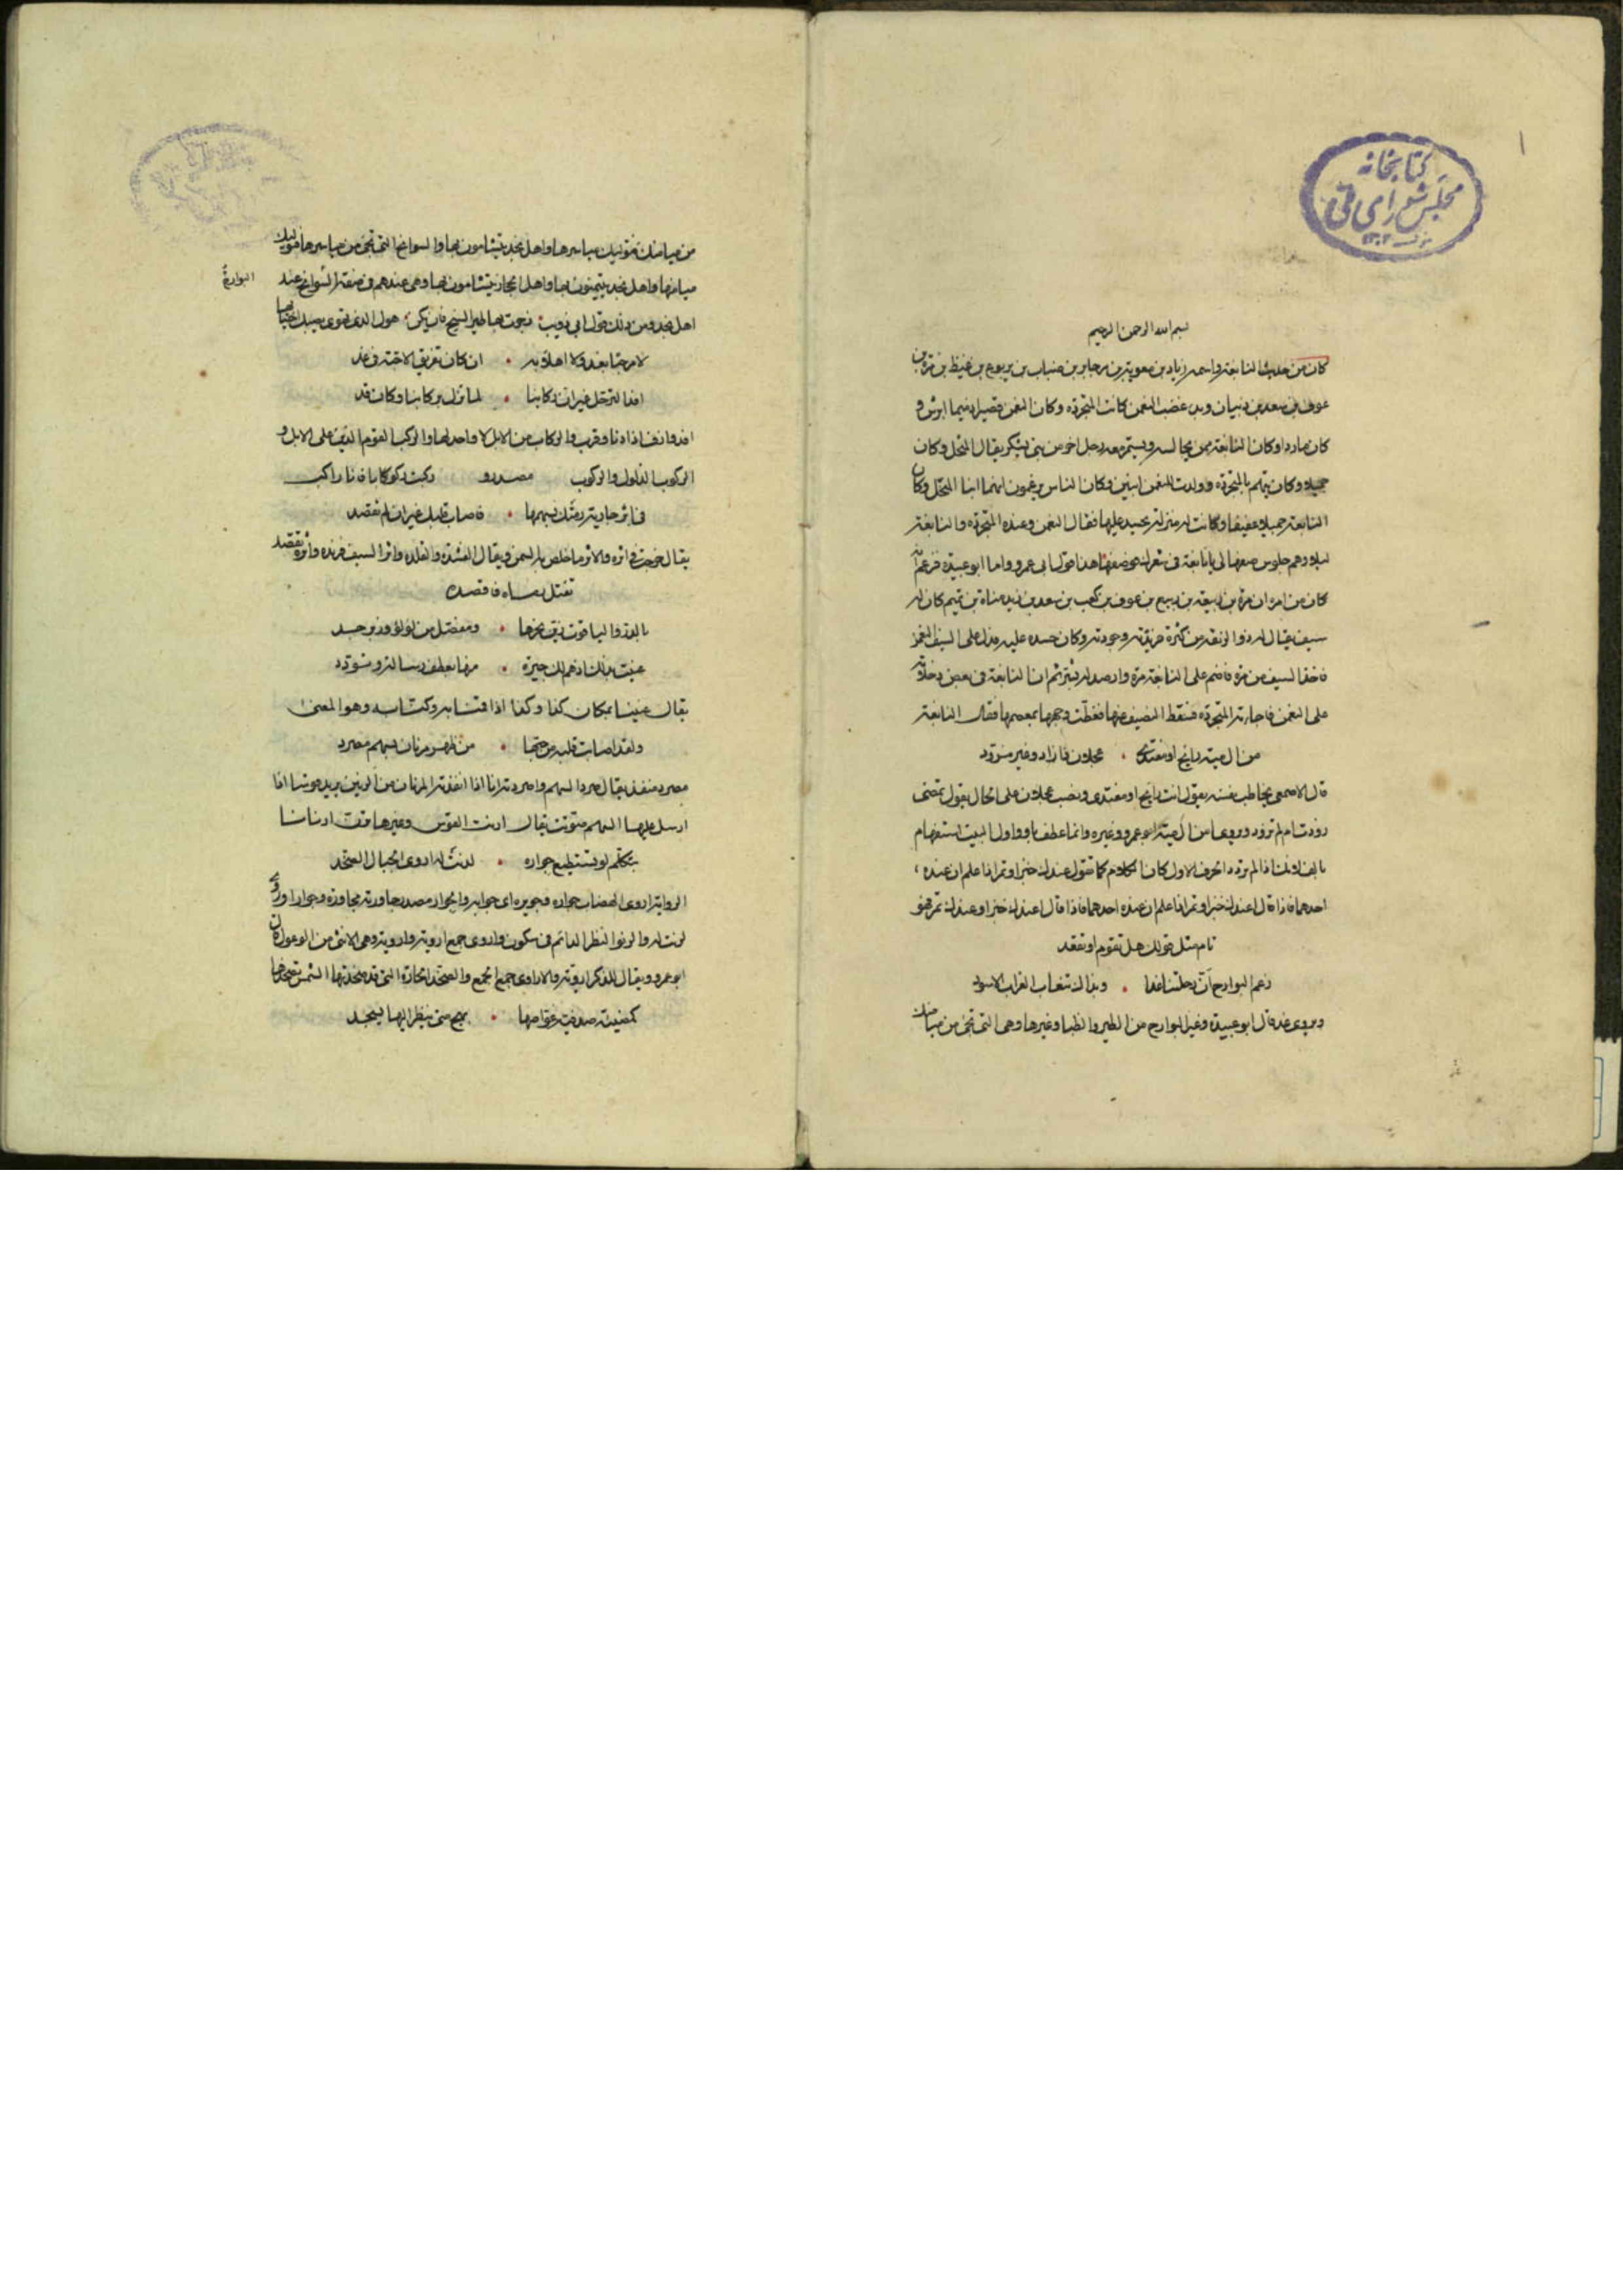 كتابخانه
مجلس شورای ملی
بسم الله الرحمن الرحيم
كان من حديث النابغة واسمه زياد بن معوية بن جابر بن ضباب بن يربوع بن غيظ بن مرة بن
عوف بن سعد بن ذبيان وبدء غضب النعمن كانت المتجردة وكان النعمن قصيرا دميما ابرش و
كان ماردا وكان النابغة ممن يجالسه ويسمر معه رجل اخر من بني يشكر يقال المنخل وكان
جميلا وكان يتهم بالمتجردة وولدت للنعمن ابنين وكان الناس يزعمون انهما ابنا المنخل وكان
النابغة جميلا عفيفا وكانت له منزلة يحسد عليها فقال النعمن وعنده المتجردة والنابغة
ليلا وهم جلوس صفها لي يا نابغة في شعرك فوصفها هذا قول ابي عمرو واما ابو عبيدة فزعم انه
كان من امره ان مرة بن ربيعة بن قريع بن عوف بن كعب بن سعد بن زيد مناة بن تميم كان له
سيف يقال له ذو الريقة من كثرة فرنده وجودته وكان حسده عليه فدل على السيف النعمن
فاخذ السيف من مرة فاضم على النابغة مرة وارصد له بشر ثم ان النابغة في بعض دخلاته
على النعمن فاجاته المتجردة فسقط النصيف عنها فغطت وجهها بمعصمها فقال النابغة
من ال مية رايح او مغتدي • عجلان ذا زاد وغير مزود
قال الاصمعي يخاطب نفسه يقول انت رايح او مغتدي ونصب عجلان على الحال يقول تمضي
زودت ام لم تزود ويروى امن ال مية ابو عمرو وغيره وانما عطف باو واول البيت استفهام
بالف لانك اذا لم تردد الحرف الاول كان الكلام كما تقول عندك خبز او تمر اذا علم ان عنده
احدهما فاذا قال اعندك خبز او تمر اذا علم ان عنده احدهما فاذا قال اعندك خبز او عندك تمر فهو
تام مثل قولك هل تقوم او تقعد
زعم البوارح ان رحلتنا غدا • وبذاك تنعاب الغراب الاسود
ويروى غد قال ابو عبيدة وغير البوارح من الطير والظبا وغيرها وهي التي تجئ من ميامنك
من ميامنك فتوليك مياسرها واهل نجد يتشامون بها والسوانح التي تجئ من مياسرها فتوليك
ميامنها واهل نجد يتيمنون بها واهل الحجاز يتشامون بها وهي عندهم في صفة السوانح عند
البوارح
اهل نجد ومن ذلك قول ابي ذويب زجرت بها طير السنيح فان يكن هواك الذي تهوى يصبك اجتنابها
لا مرحبا بغد ولا اهلا به • ان كان تفريق الاحبة في غد
افد الترحل غير ان ركابنا • لما تزل بركابنا وكان قد
افد وازف اذا دنا وقرب والركاب من الابل لا واحد لها والركب القوم الذين على الابل و
الركوب الذلول والركوب مصدر و ركبت ركوكا بافانا راكب
في اثر جارية رمتك بسهمها • فاصاب قلبك غير ان لم تقصد
يقال خرجت في اثره والاثر ما خلص به السمن ويقال القشدة والقلدة واثر السيف فرنده واثره تقصد
تقتل رماه فاقصده
بالدر والياقوت زين نحرها • ومفصل من لولو وزبرجد
غنيت بذلك اذ هم لك جيرة • منها بعطف رسالة وتودد
يقال غنينا بمكان كذا وكذا اذا اقمنا به وكنا به وهو المغنى
ولقد اصابت قلبه من حبها • من ظهر مرنان بسهم مصرد
مصرد منفذ يقال صرد السهم واصردته انا اذا انفذته المرنان من الرنين يريد صوتها اذا
ارسل عليها السهم صوتت يقال ارنت القوس وغيرها فهي ارنانا
بتكلم لو تستطيع حواره • لدنت له اروى الجبال الصخد
الرواية اروى الهضاب حواره وحويره اي جوابه والحوار مصدر حاورته محاورة وحوارا وروى
لرنت له والرنو النظر الدائم في سكون واروى جمع اروية واروية وهي الانثى من الوعول قال
ابو عمرو ويقال للذكر اروية والاراوي جمع الجمع والصخد الحارة التي قد صخدتها الشمس تصخدها
كمضيئة صدفية غواصها • بهج متى ينظر اليها يسجد